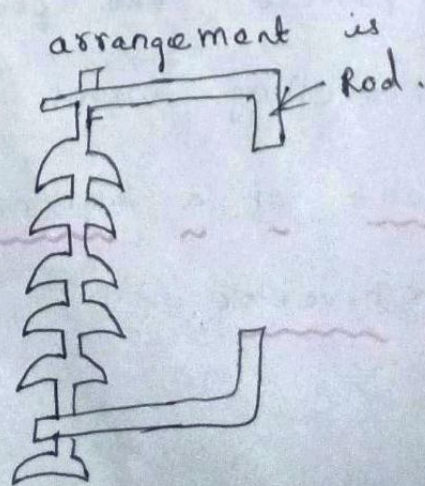 arrangement is
Rod.